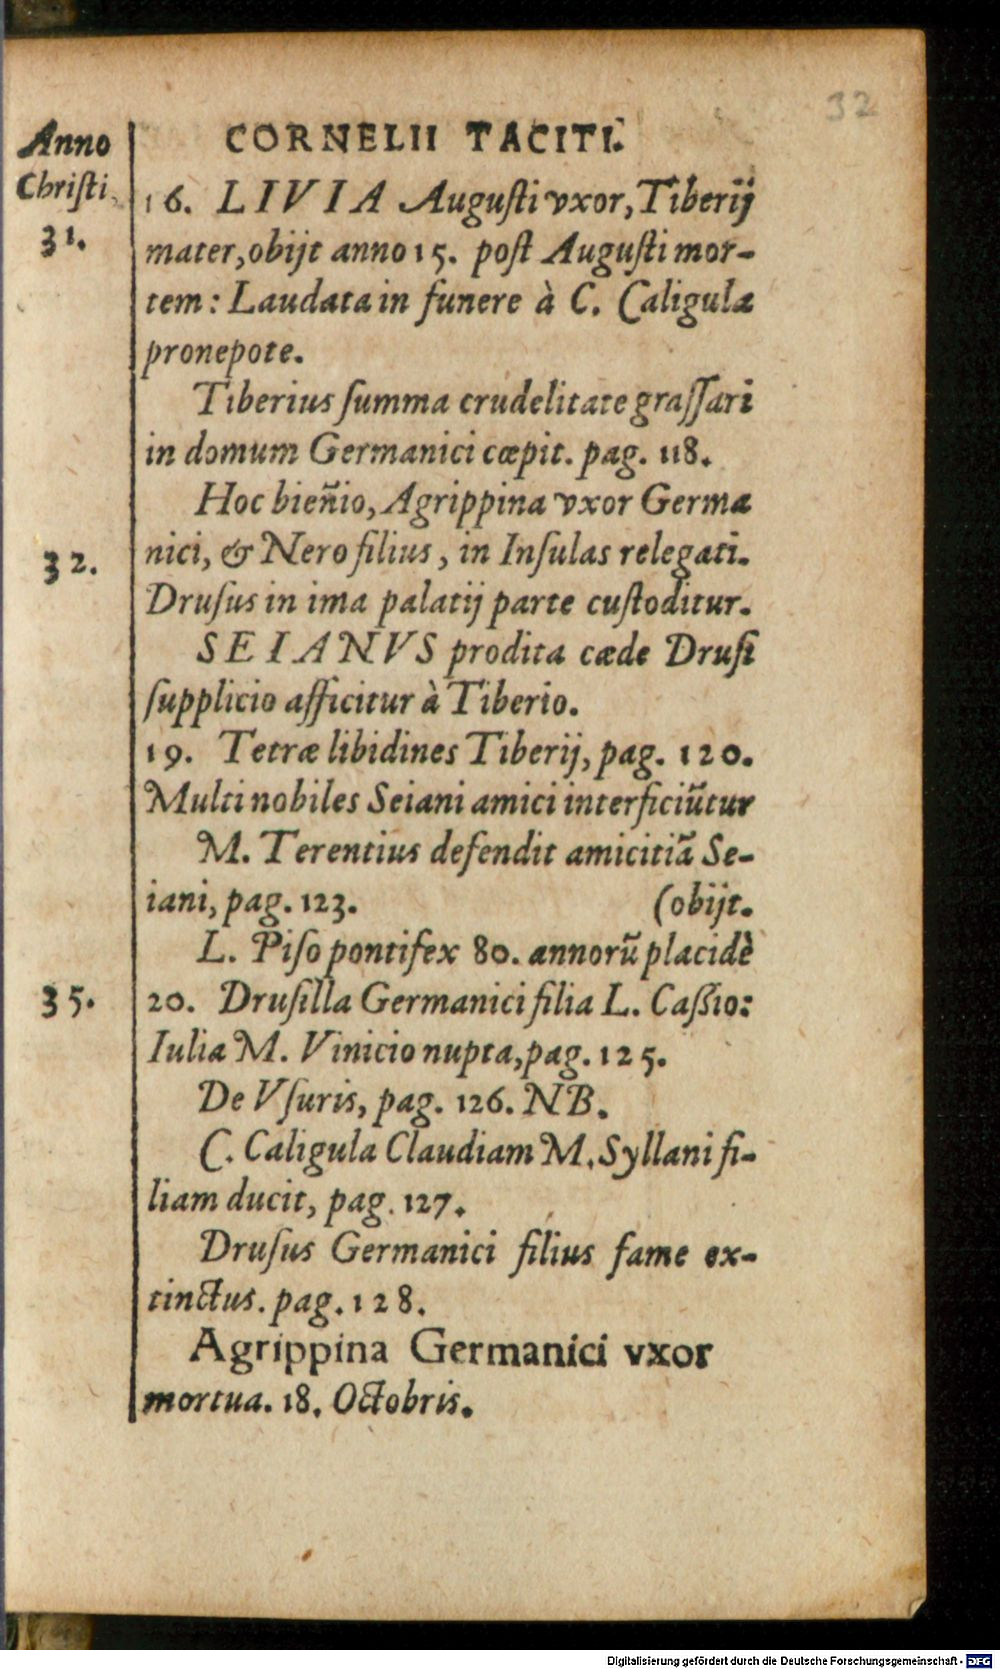 32
CORNELII TACITI.
Anno
Christi
16. LIVIA Augusti vxor, Tiberij
31.
mater, obijt anno 15. post Augusti mor-
tem: Laudata in funere à C. Caligula
pronepote.
Tiberius summa crudelitate grassari
in domum Germanici cœpit. pag. 118.
Hoc bien̄io, Agrippina vxor Germa
32.
nici, & Nero filius, in Insulas relegati.
Drusus in ima palatij parte custoditur.
SEIANVS prodita cæde Drusi
supplicio afficitur à Tiberio.
19. Tetræ libidines Tiberij, pag. 120.
Multi nobiles Seiani amici interficiūtur
M. Terentius defendit amicitiā Se-
iani, pag. 123. (obijt.
L. Piso pontifex 80. annorū placidè
35.
20. Drusilla Germanici filia L. Caßio:
Iulia M. Vinicio nupta, pag. 125.
De Vsuris, pag. 126. NB.
C. Caligula Claudiam M. Syllani fi-
liam ducit, pag. 127.
Drusus Germanici filius fame ex-
tinctus. pag. 128.
Agrippina Germanici vxor
mortua. 18. Octobris.
Digitalisierung gefördert durch die Deutsche Forschungsgemeinschaft - DFG